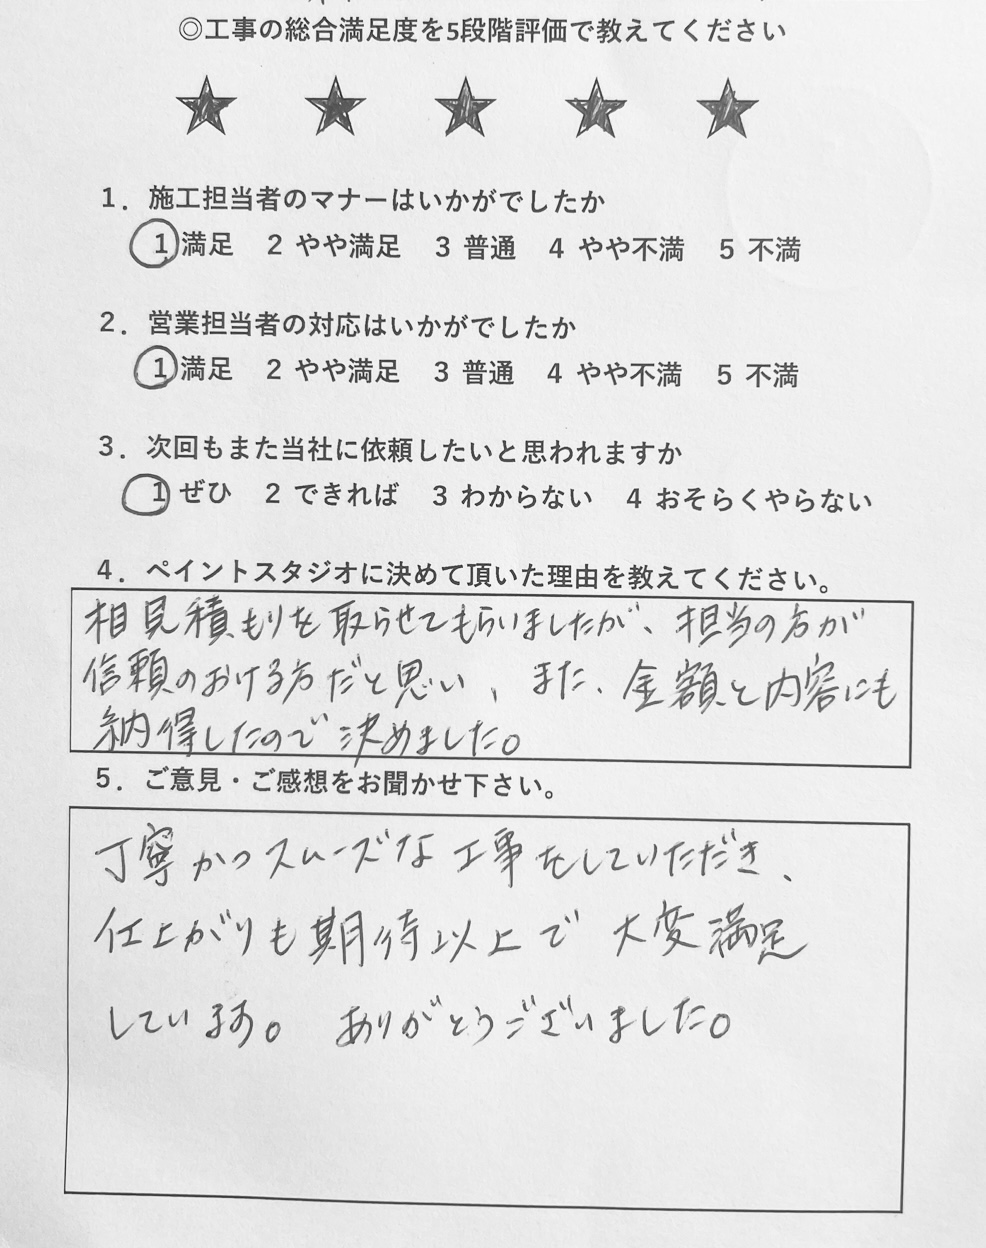 ◎工事の総合満足度を5段階評価で教えてください
★ ★ ★ ★ ★
1．施工担当者のマナーはいかがでしたか
1 満足 2 やや満足 3 普通 4 やや不満 5 不満
2．営業担当者の対応はいかがでしたか
1 満足 2 やや満足 3 普通 4 やや不満 5 不満
3．次回もまた当社に依頼したいと思われますか
1 ぜひ 2 できれば 3 わからない 4 おそらくやらない
4．ペイントスタジオに決めて頂いた理由を教えてください。
相見積もりを取らせてもらいましたが、担当の方が
信頼のおける方だと思い、また、金額と内容にも
納得したので決めました。
5．ご意見・ご感想をお聞かせ下さい。
丁寧かつスムーズな工事をしていただき、
仕上がりも期待以上で大変満足
しています。ありがとうございました。